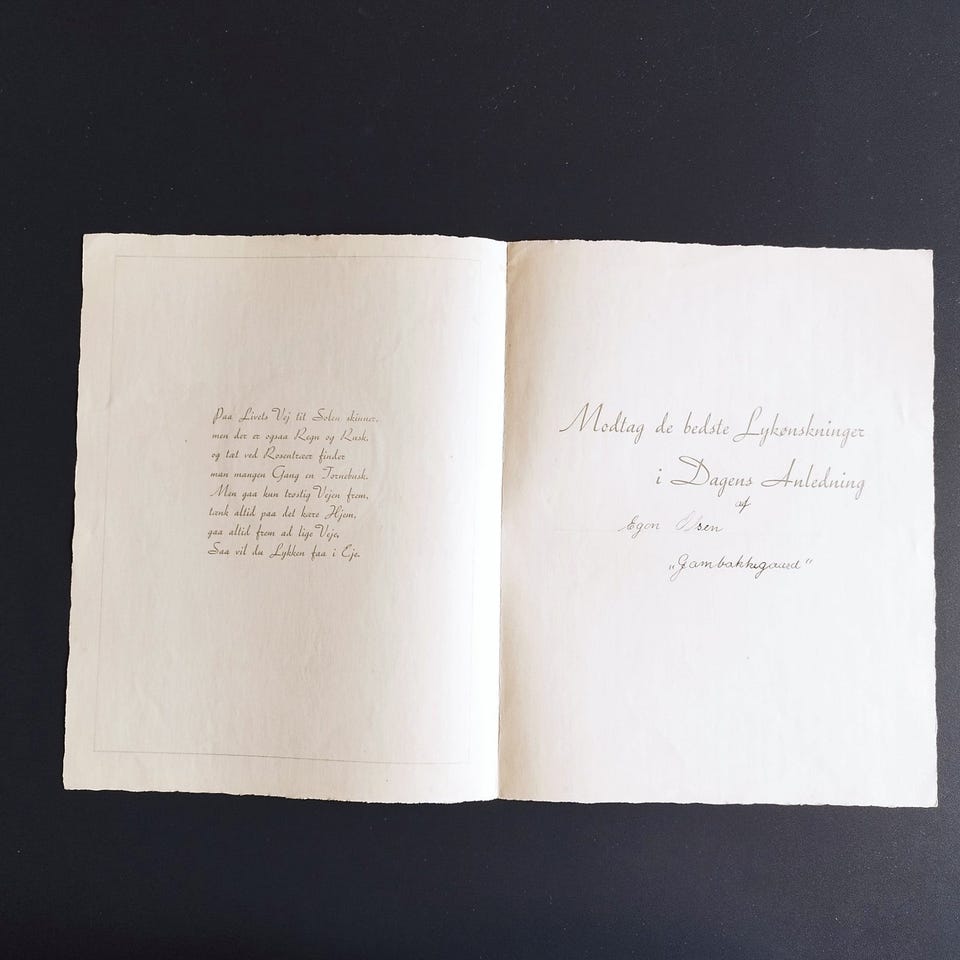 Paa Livets Vej tit Solen skinner,
men der er ogsaa Regn og Rusk,
og tæt ved Rosentræer finder
man mangen Gang en Tornebusk.
Men gaa kun trøstig Vejen frem,
tænk altid paa det kære Hjem,
gaa altid frem ad lige Veje,
Saa vil du Lykken faa i Eje.
Modtag de bedste Lykønskninger
i Dagens Anledning
af
Egon